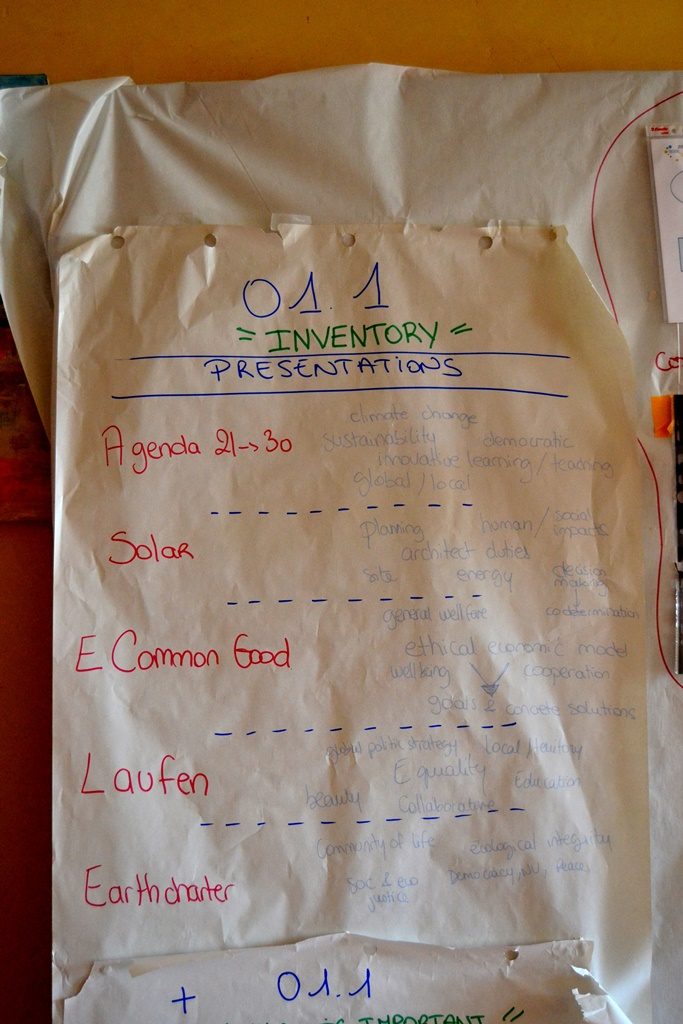 01.1
= INVENTORY =
PRESENTATIONS
Agenda 21->30
climate change
sustainability democratic
innovative learning/teaching
global/local
Solar
planning human/social impacts
architect duties
site energy decision making
E Common Good
general wellfare codetermination
ethical economic model
wellbeing cooperation
goals & concrete solutions
Laufen
global politic strategy Local/territory
Equality Education
beauty Collaborative
Earthcharter
Community of life ecological integrity
soc & eco justice Democracy, NV, Peace
+ 01.1
IS IMPORTANT "